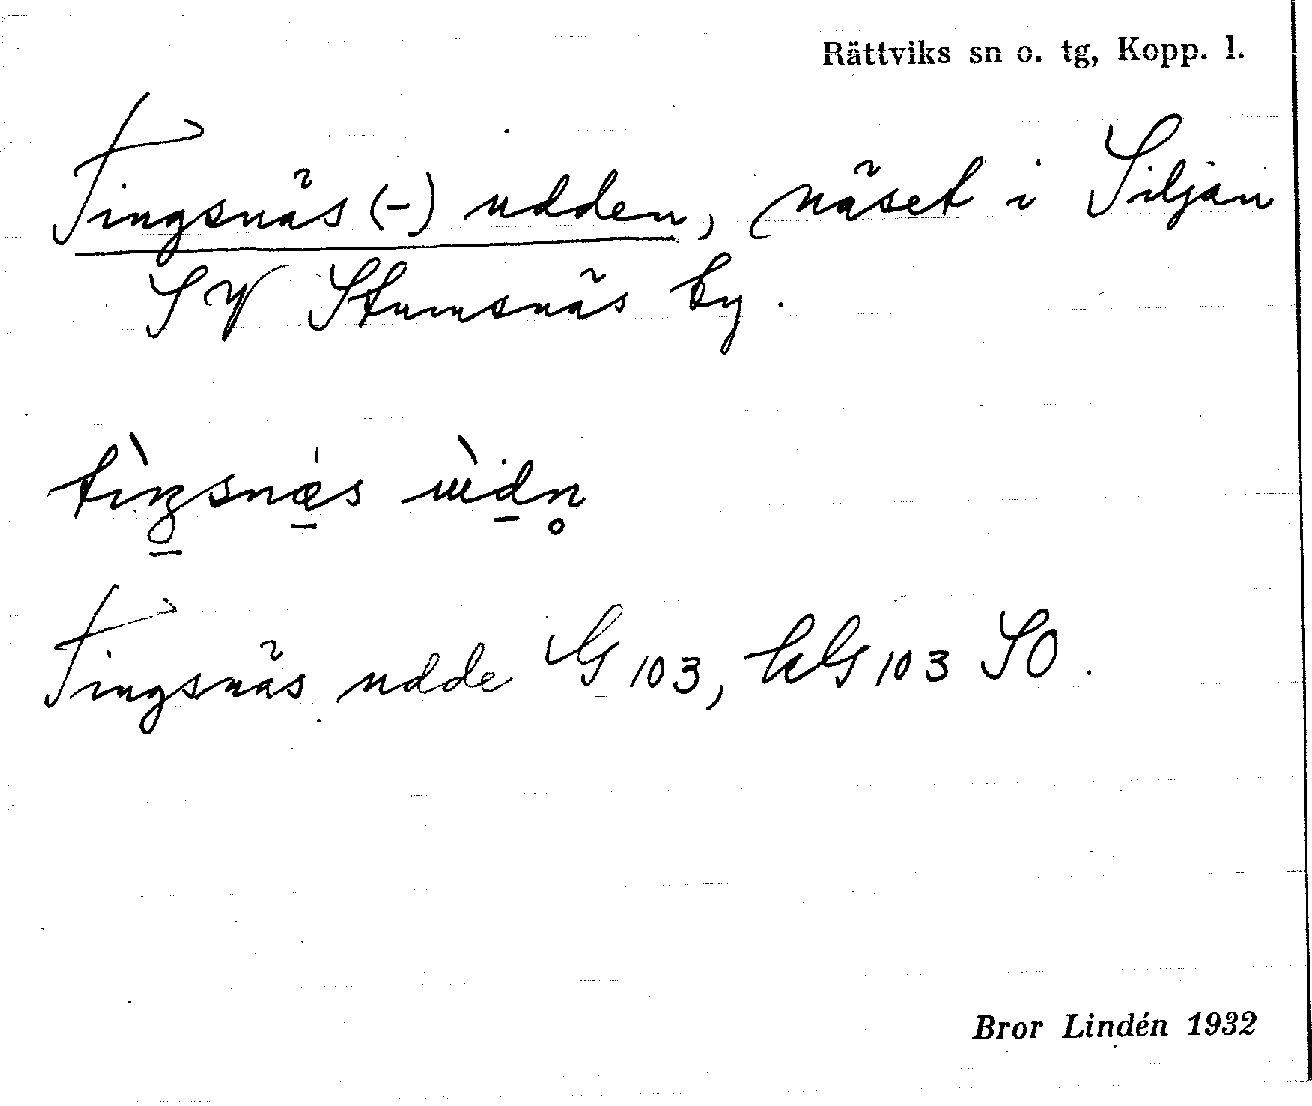 Rättviks sn o. tg, Kopp. l.
Tingsnäs(-) udden, näset i Siljan
SV Stumsnäs by.
tìŋsnæ̠s ɯ̀d̠n̥
Tingsnäs udde G 103, kG 103 SO.
Bror Lindén 1932